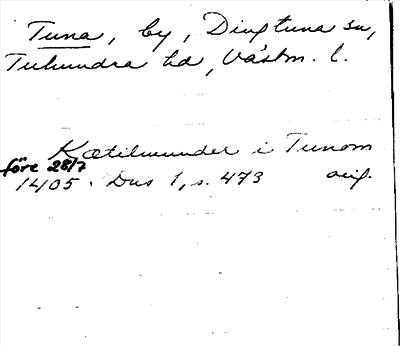 Tuna, by, Dingtuna sn,
Tuhundra hd, Västm. l.
Kætilmunder i Tunom
före 28/7
1405. Dns 1, s. 473 orig.